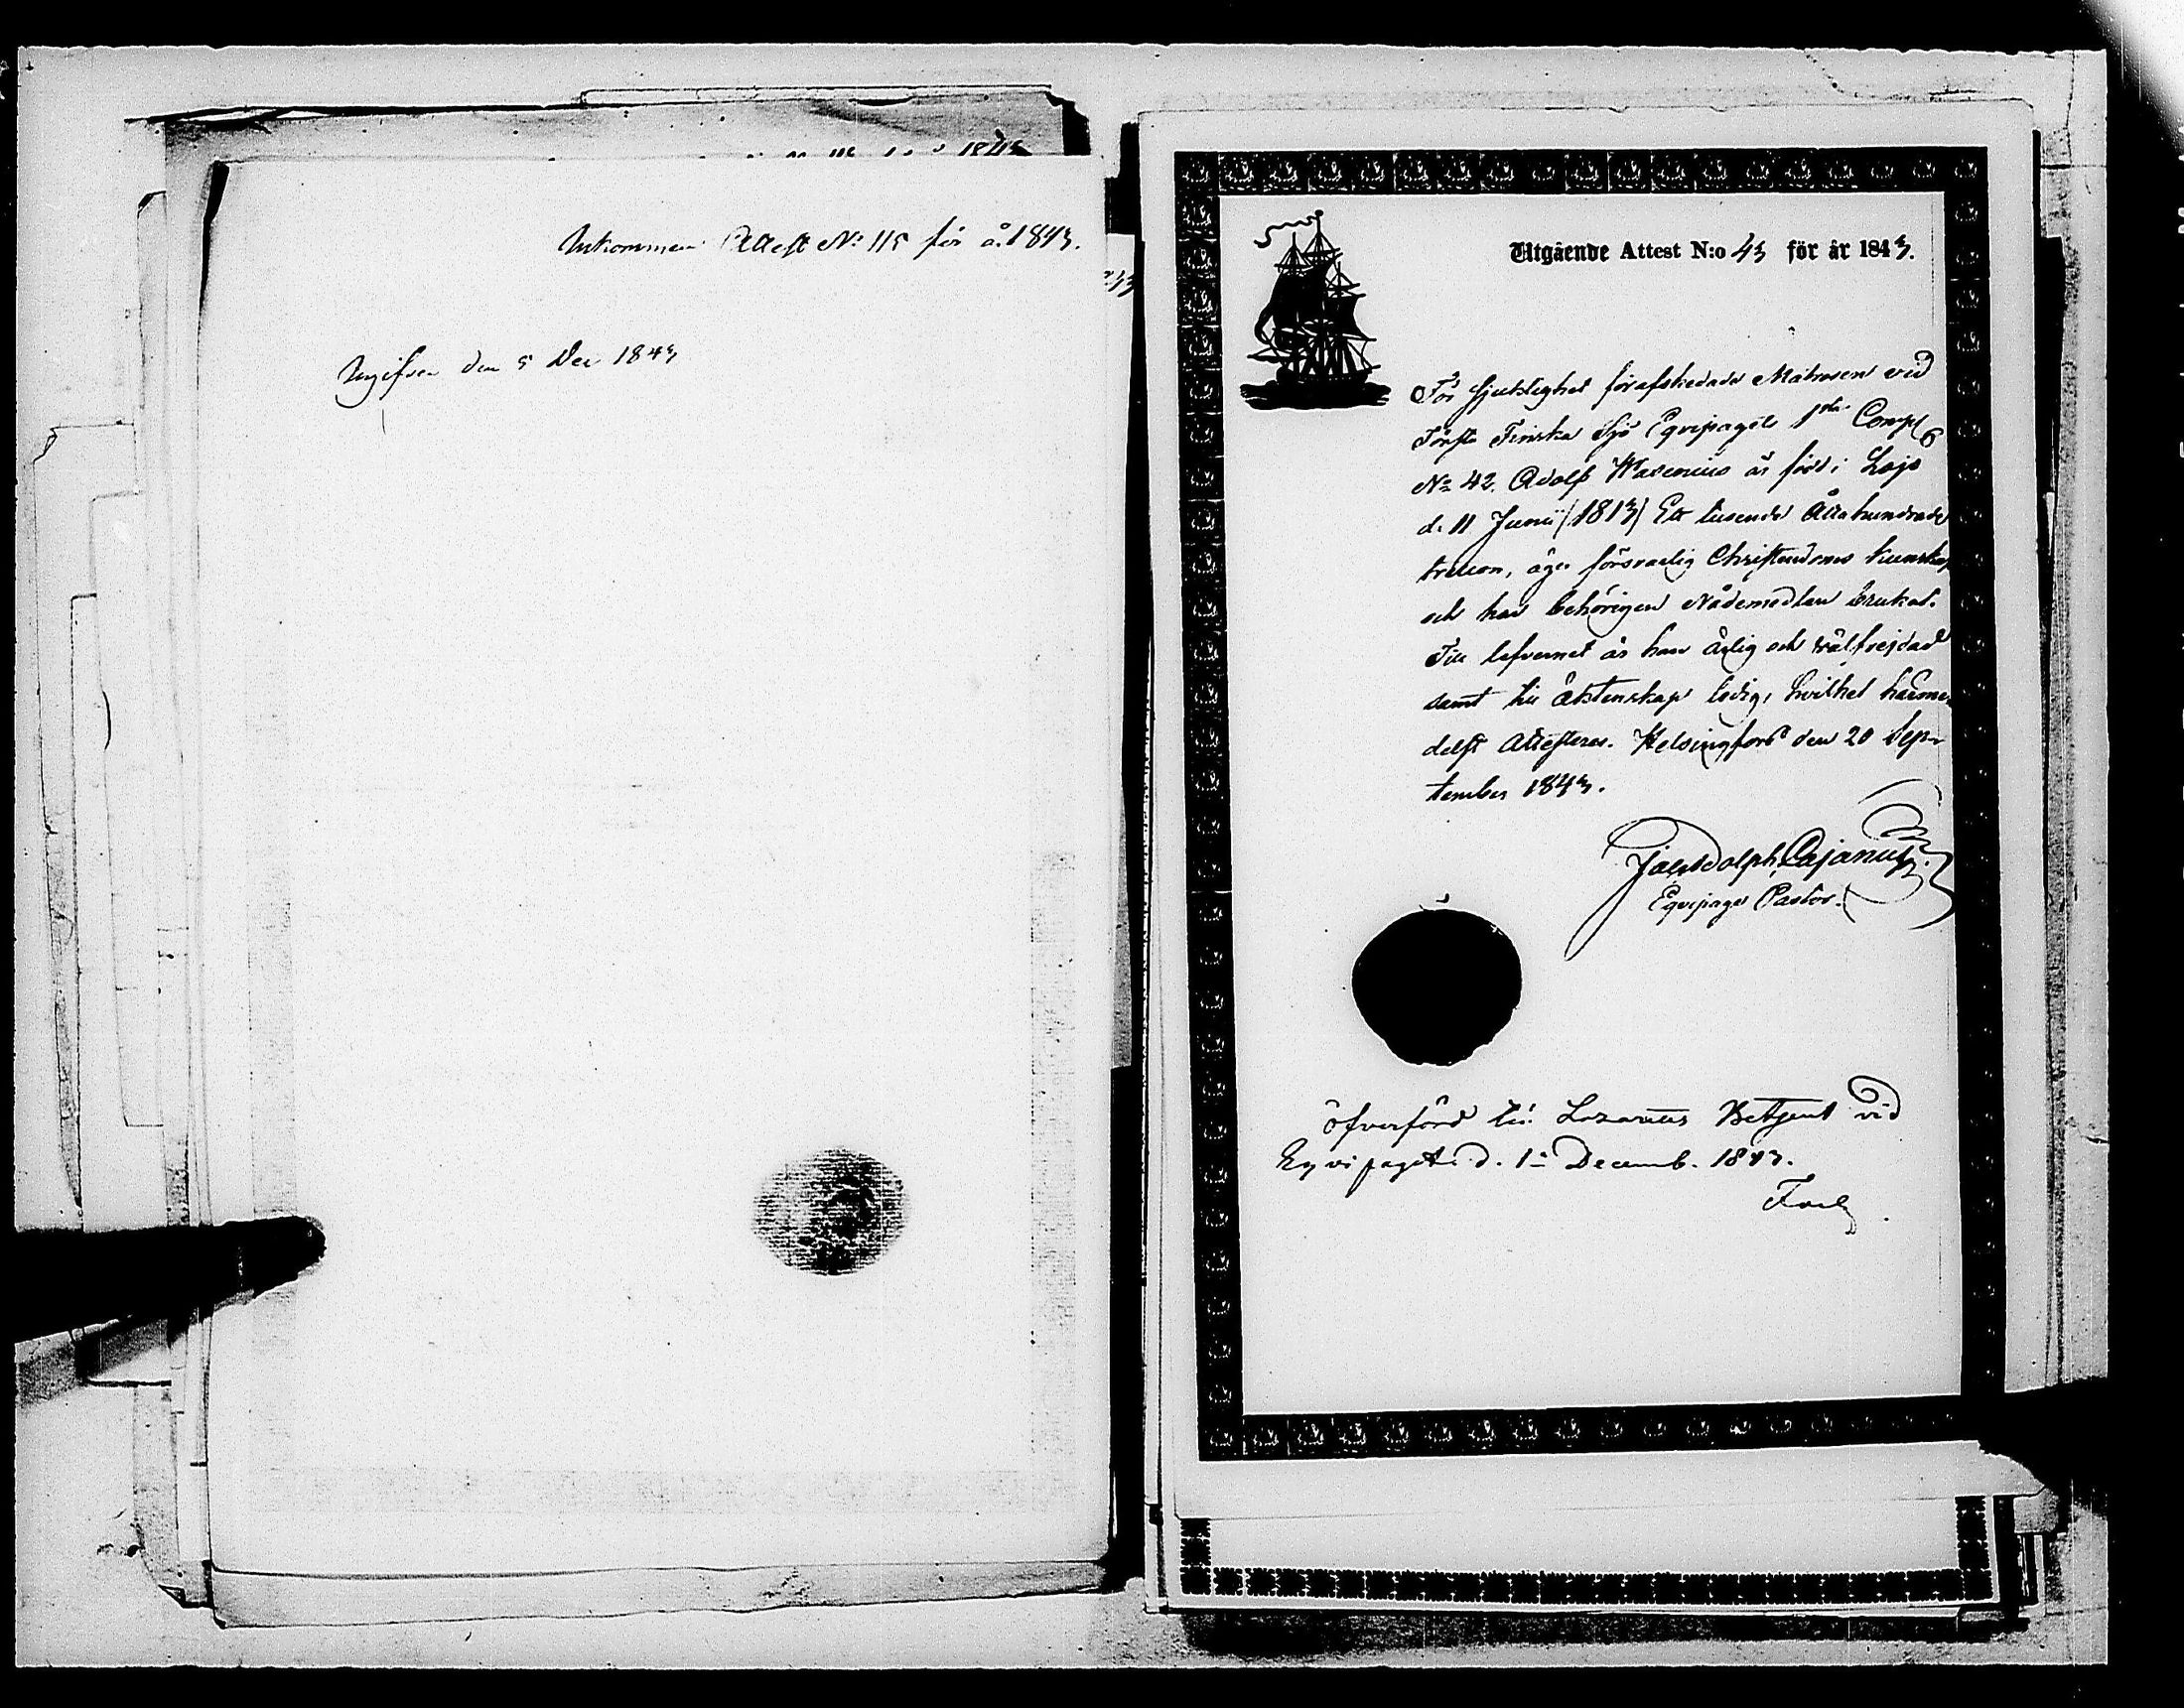 Inkommen Attest No 115 för år 1843.
Ingifven den 5 Dec 1843
Utgående Attest N:o 43 för år 1843.
För sjuklighet förafskedade Matrosen vid
Första Finska Sjö Equipagets 1sta Comp:
No 42. Adolf Wasenius är född i Lojo
d. 11 Junii (1813) Ett tusende Åttahundrade
tretton, äger försvarlig Christendoms kunskap
och har behörigen Nådemedlen brukat.
Till lefvernet är han ärlig och välfrejdad
samt till äktenskap ledig, hvilket härme-
delst Attesteras. Helsingfors den 20 Sep-
tember 1843.
Jac Adolph Cajanus
Equipage Pastor.
Öfverförd till Lazaretts Betjent vid
Eqvipaget d. 1 Decemb. 1843.